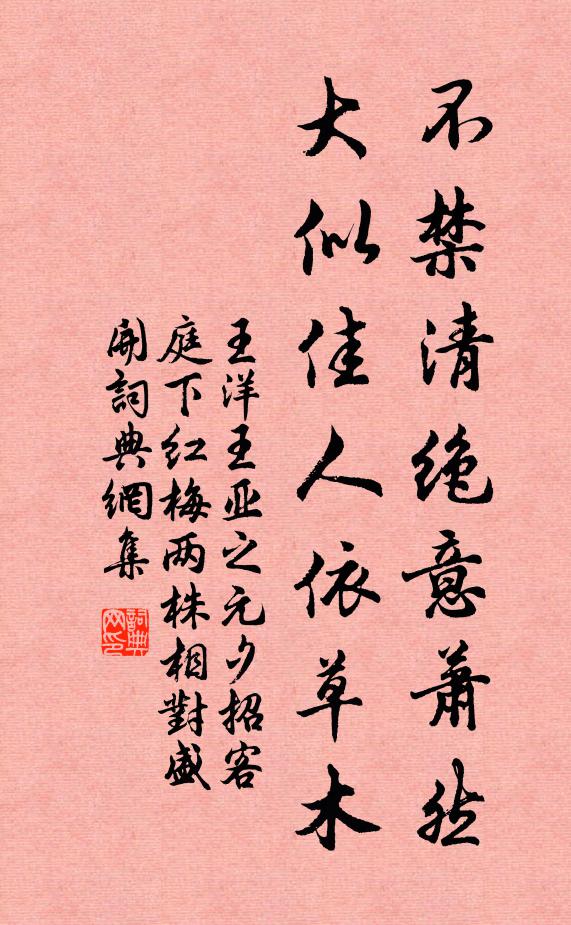 不禁清绝意蕭然
大似佳人依草木
王洋王亚之元夕招客
庭下红梅两株相對盛
開詞典網集
詞典
网印